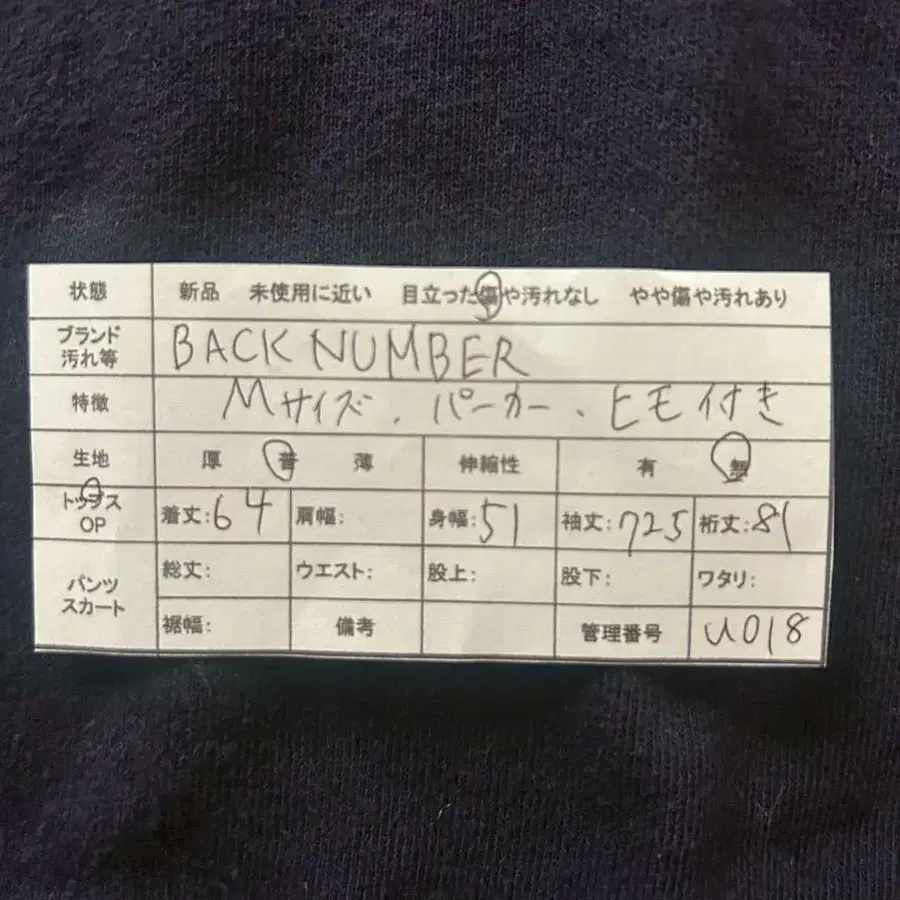 状態 新品 未使用に近い 目立った傷や汚れなし やや傷や汚れあり
ブランド
汚れ等 BACK NUMBER
特徴 Mサイズ、パーカー、ヒモ付き
生地 厚 普 薄 伸縮性 有 無
トップス
OP 着丈:64 肩幅: 身幅:51 袖丈:725 裄丈:81
パンツ
スカート 総丈: ウエスト: 股上: 股下: ワタリ:
裾幅: 備考 管理番号 U018